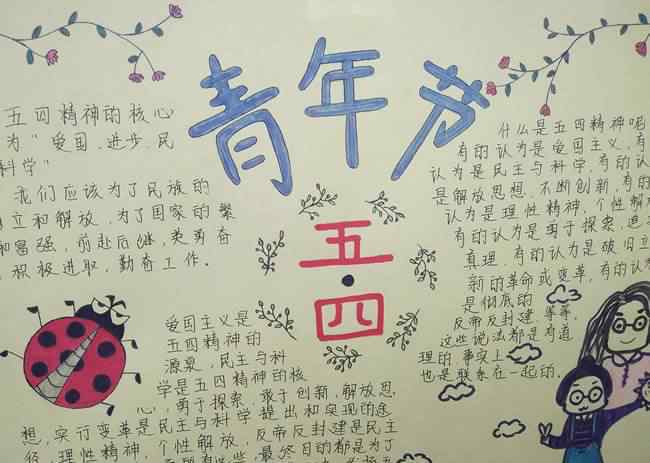 青年节
五·四
五四精神的核心
为"爱国、进步、民
科学"
我们应该为了民族的
立和解放,为了国家的繁
和富强,前赴后继,英勇奋
积极进取,勤奋工作。
爱国主义是
五四精神的
源泉,民主与科
学是五四精神的核
心,勇于探索、敢于创新,解放思
想,实行变革是民主与科学提出和实现的途
径,理性精神,个性解放,反帝反封建是民主
最终目的都是为了
什么是五四精神呢
有的认为是爱国主义,有
认为是民主与科学,有的认
是解放思想,不断创新,有的
认为是理性精神,个性解
有的认为是勇于探索,追
真理,有的认为是破旧立
新的革命或变革,有的认为
是彻底的
反帝反封建,等等。
这些说法都是有道
理的,事实上
也是联系在一起的。